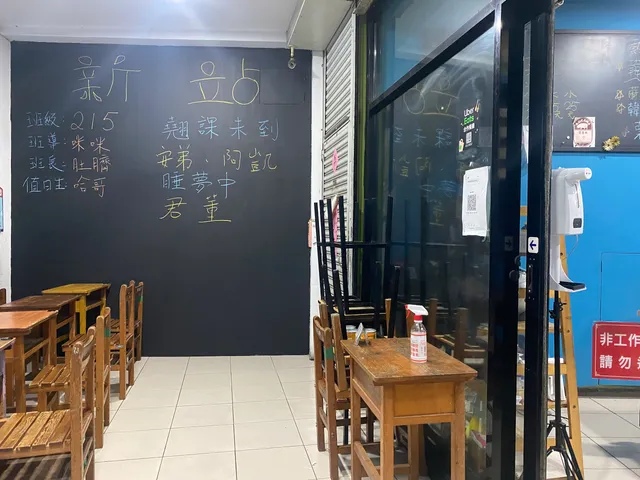 新 站
班級: 215
班導: 咪咪
班長: 肚臍
值日生 哈哥
翹課未到
安弟、阿凱
睡夢中
君董
Uber
Eats
非工作
請勿